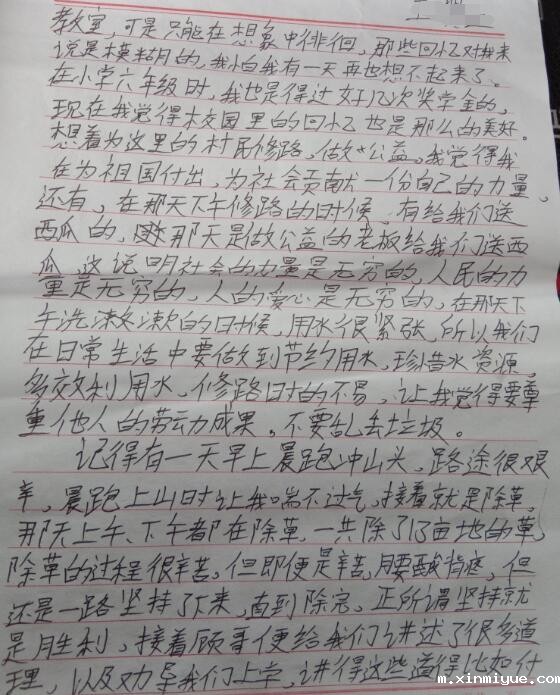 教室，可是只能在想象中徘徊，那些回忆对我来
说是模糊的，我怕我有一天再也想不起来了。
在小学六年级时，我也是得过好几次奖学金的，
现在我觉得校园里的回忆也是那么的美好。
想着为这里的村民修路，做公益，我觉得我
在为祖国付出，为社会贡献一份自己的力量，
还有，在那天下午修路的时候，有给我们送
西瓜的，那天是做公益的老板给我们送西
瓜，这说明社会的力量是无穷的，人民的力
量是无穷的，人的爱心是无穷的，在那天下
午洗漱漱的时候，用水很紧张，所以我们
在日常生活中要做到节约用水，珍惜水资源，
多效利用水，修路时的不易，让我觉得要尊
重他人的劳动力成果，不要乱丢垃圾。
记得有一天早上晨跑冲山头，路途很艰
辛，晨跑上山时让我喘不过气，接着就是除草，
那天上午、下午都在除草，一共除了13亩地的草，
除草的过程很辛苦，但即便是辛苦，腰酸背疼，但
还是一路坚持了下来，直到除完，正所谓坚持就
是胜利，接着顾哥便给我们讲述了很多道
理，以及劝导我们上学，讲得这些道得比如付
m.xinmiyue.com